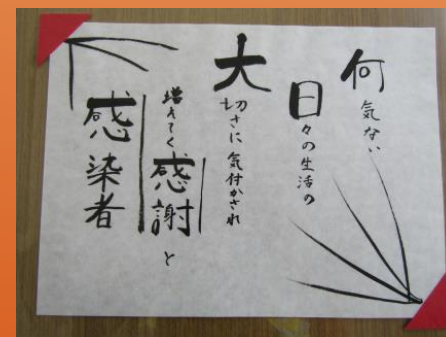 何気ない
日々の生活の
大切さに気付かされ
増えてく感謝と
感染者